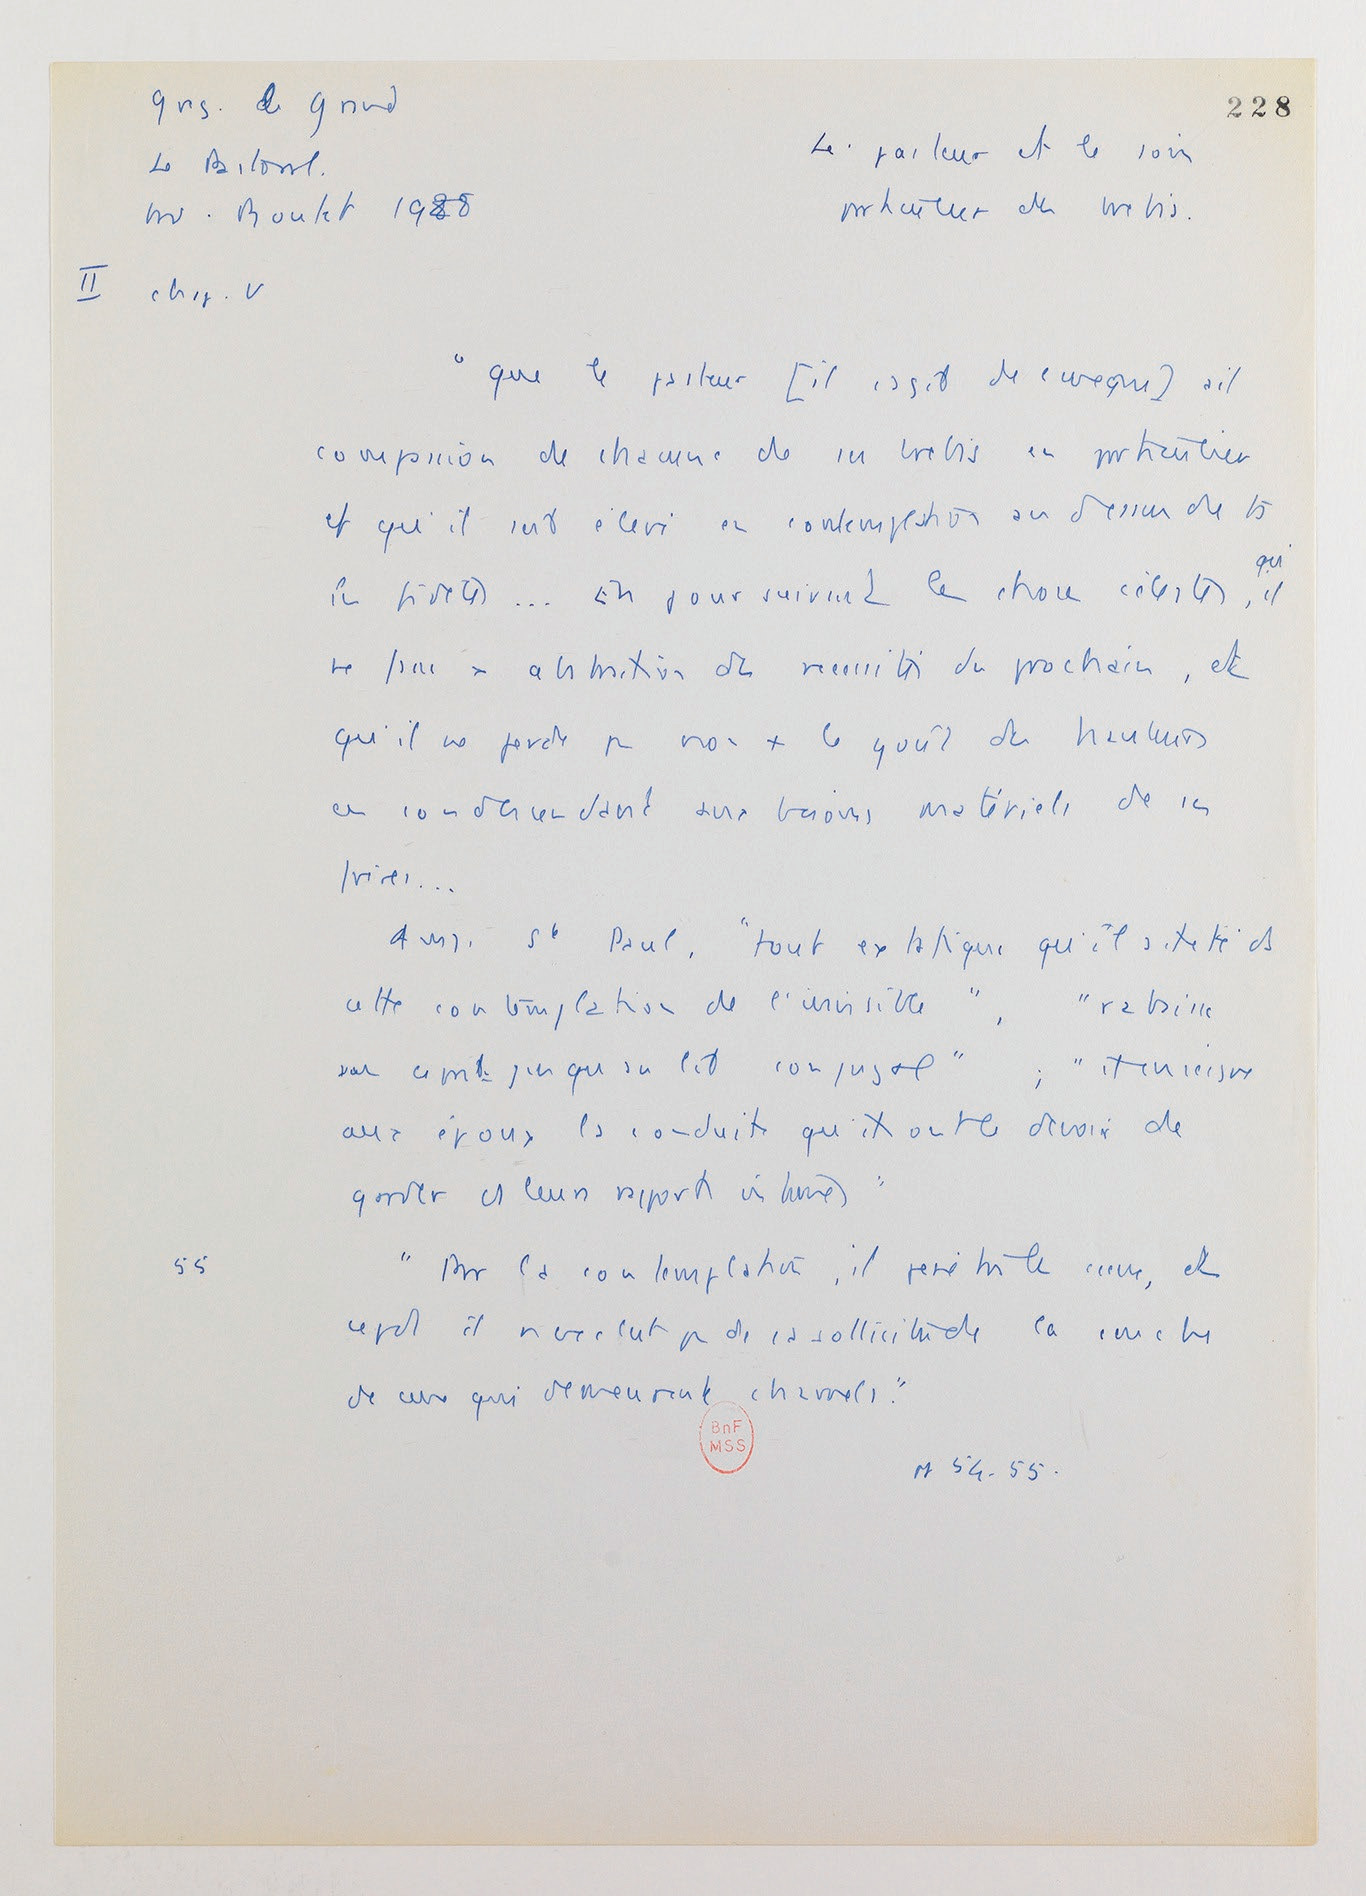 228
Greg. le Grand
Le Pastoral.
trad. Boutet 1928
Le pasteur et le soin
particulier des brebis.
II chap. V
"Que le pasteur [il s'agit de l'évêque] ait
compassion de chacune de ses brebis en particulier
et qu'il soit élevé en contemplation au dessus de ts
les fidèles ... En poursuivant les choses célestes, qu'il
ne fasse x abstraction des nécessités du prochain, et
qu'il ne perde pas non + le goût des hauteurs
en condescendant aux besoins matériels de ses
frères...
Ainsi St Paul, "tout extatique qu'il ait été ds
cette contemplation de l'invisible", "rabaisse
son esprit jusqu'au lit conjugal" ; "il enseigne
aux époux la conduite qu'ils ont le devoir de
garder ds leurs rapports intimes"
55 "Par la contemplation, il pénètre les cieux, et
cepdt il n'exclut pas de sa sollicitude la couche
de ceux qui demeurent charnels."
BnF
MSS
p 54-55.